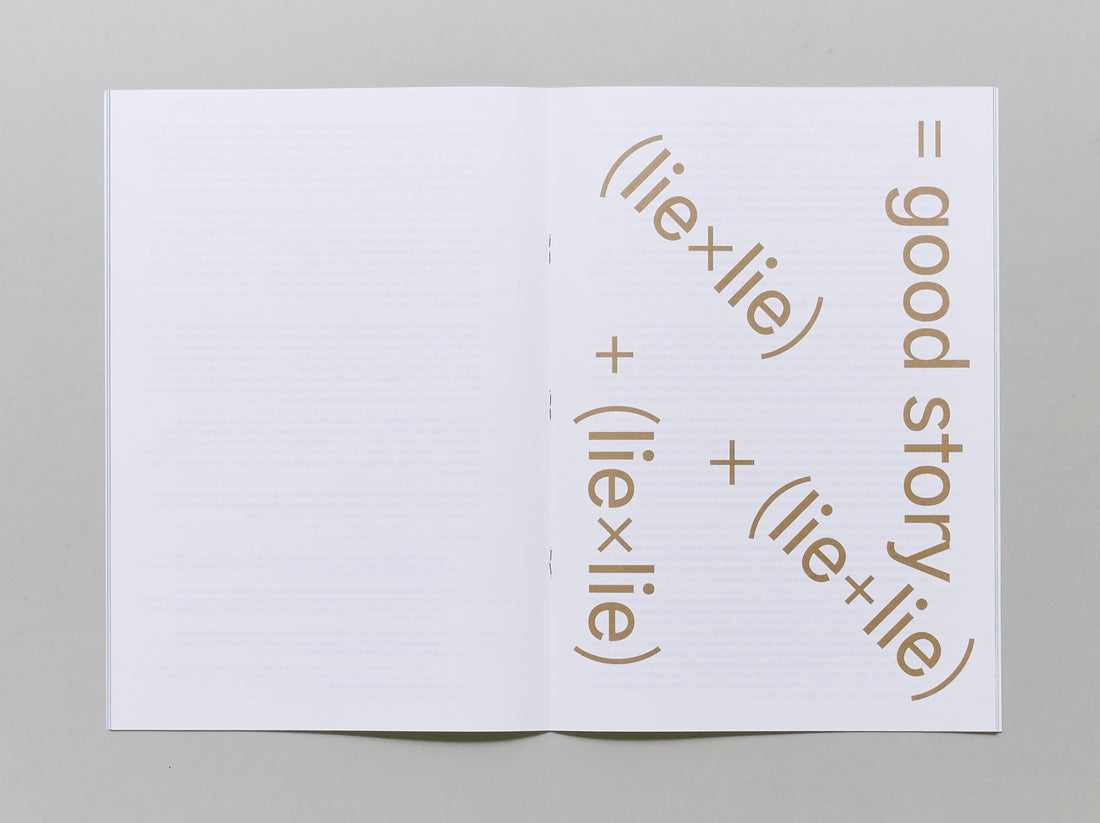 (lie×lie)
× (lie+lie)
+ (lie×lie)
= good story